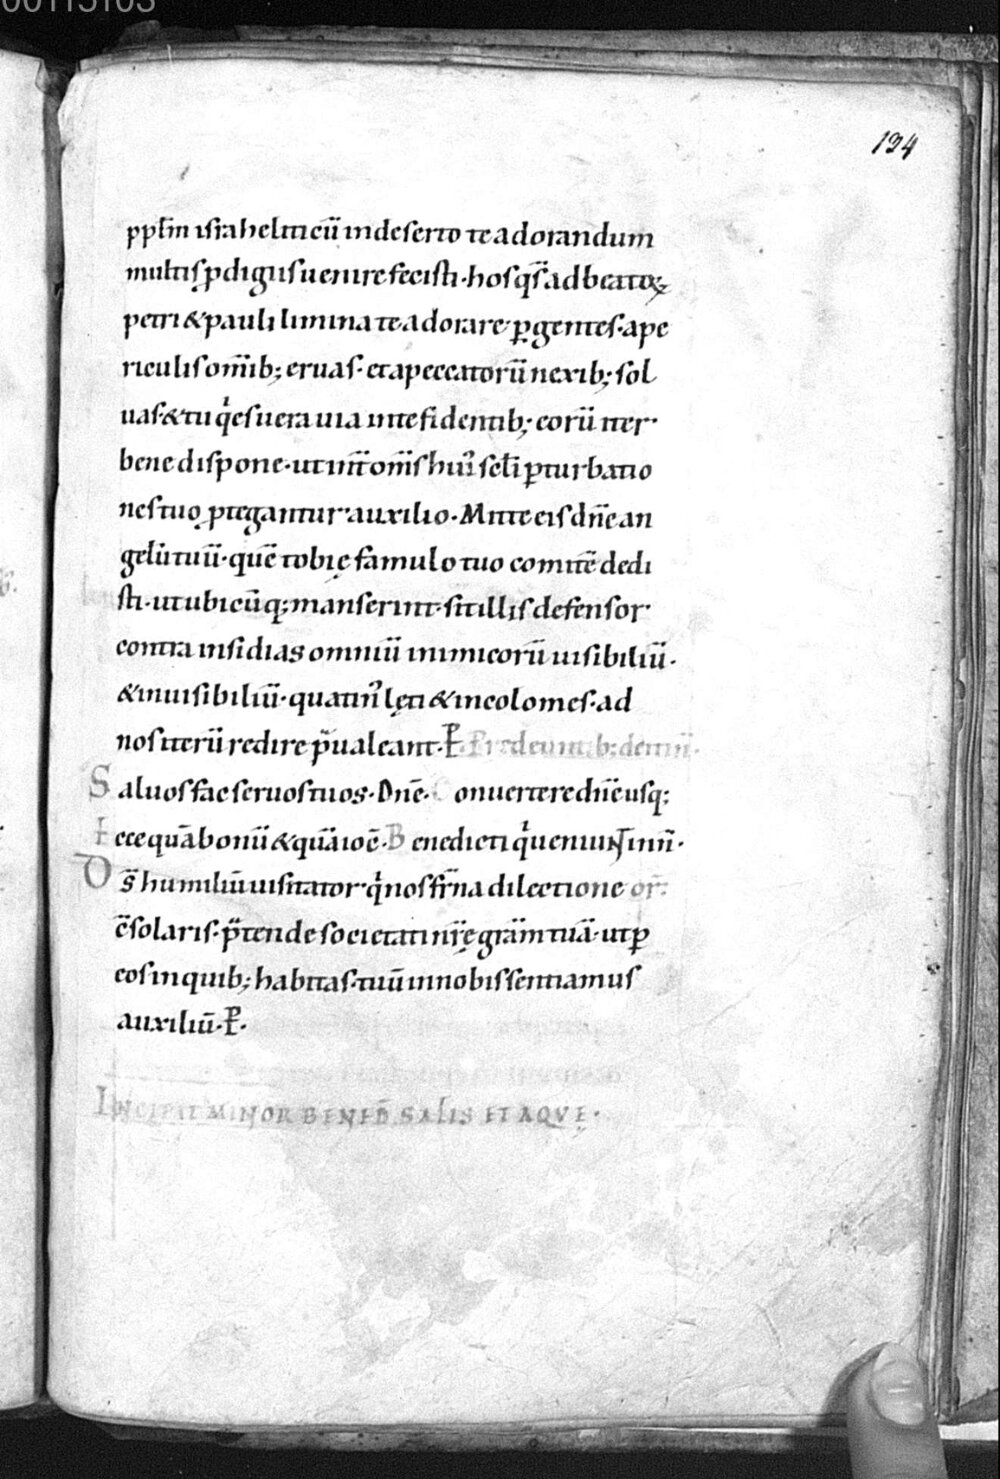 00115103
134
ppłm israheliticū indeserto te adorandum
multis ꝓdigiis uenire fecisti· hos qs̄ ad beatoꝝ
petri & pauli limina te adorare ꝑgentes· ape
riculis om̄ib; eruas· et apeccatorū nexib; sol
uas· & tu q̇ es uera uia inte fidentib; eorū iter·
bene dispone· ut int̄ om̄s hui᾽ scłi ꝑturbatio
nes tuo ꝓtegantur auxilio· Mitte eis dn̄e an
gelū tuū· quē tobię famulo tuo comitē dedi
sti· ut ubicūq; manserint· sit illis defensor
contra insidias omniū inimicorū uisibiliū·
& inuisibiliū· quatin᾽ lęti & incolomes· ad
nos iterū redire p̄ualeant· P
Saluos fac seruos tuos· Dn̄e· Conuertere dn̄e usq;
Ecce quā bonū & quā ioc̄· Benedicti q̇ uenit IN n̄·
Ds̄ humiliū uisitator q̇ nos fr̄na dilectione
c̄solaris· p̄tende societati nr̄ę gr̄am tuā· ut ꝑ
eos inquib; habitas· tuū in nobis sentiamus
auxiliū· P·
INCIPIT MINOR BENED̄ SALIS ET AQVĘ·